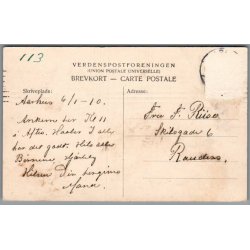 113
VERDENSPOSTFORENINGEN
(UNION POSTALE UNIVERSELLE)
BREVKORT — CARTE POSTALE
Skriveplads:
Adresse:
Aarhus 6/1-10.
Ankom her Kl 11
i Aftes. Haaber I alle
har det godt. Hils alle
Børnene
Hilsen Din hengivne
Fru F.
Skolegade 6
Randers.